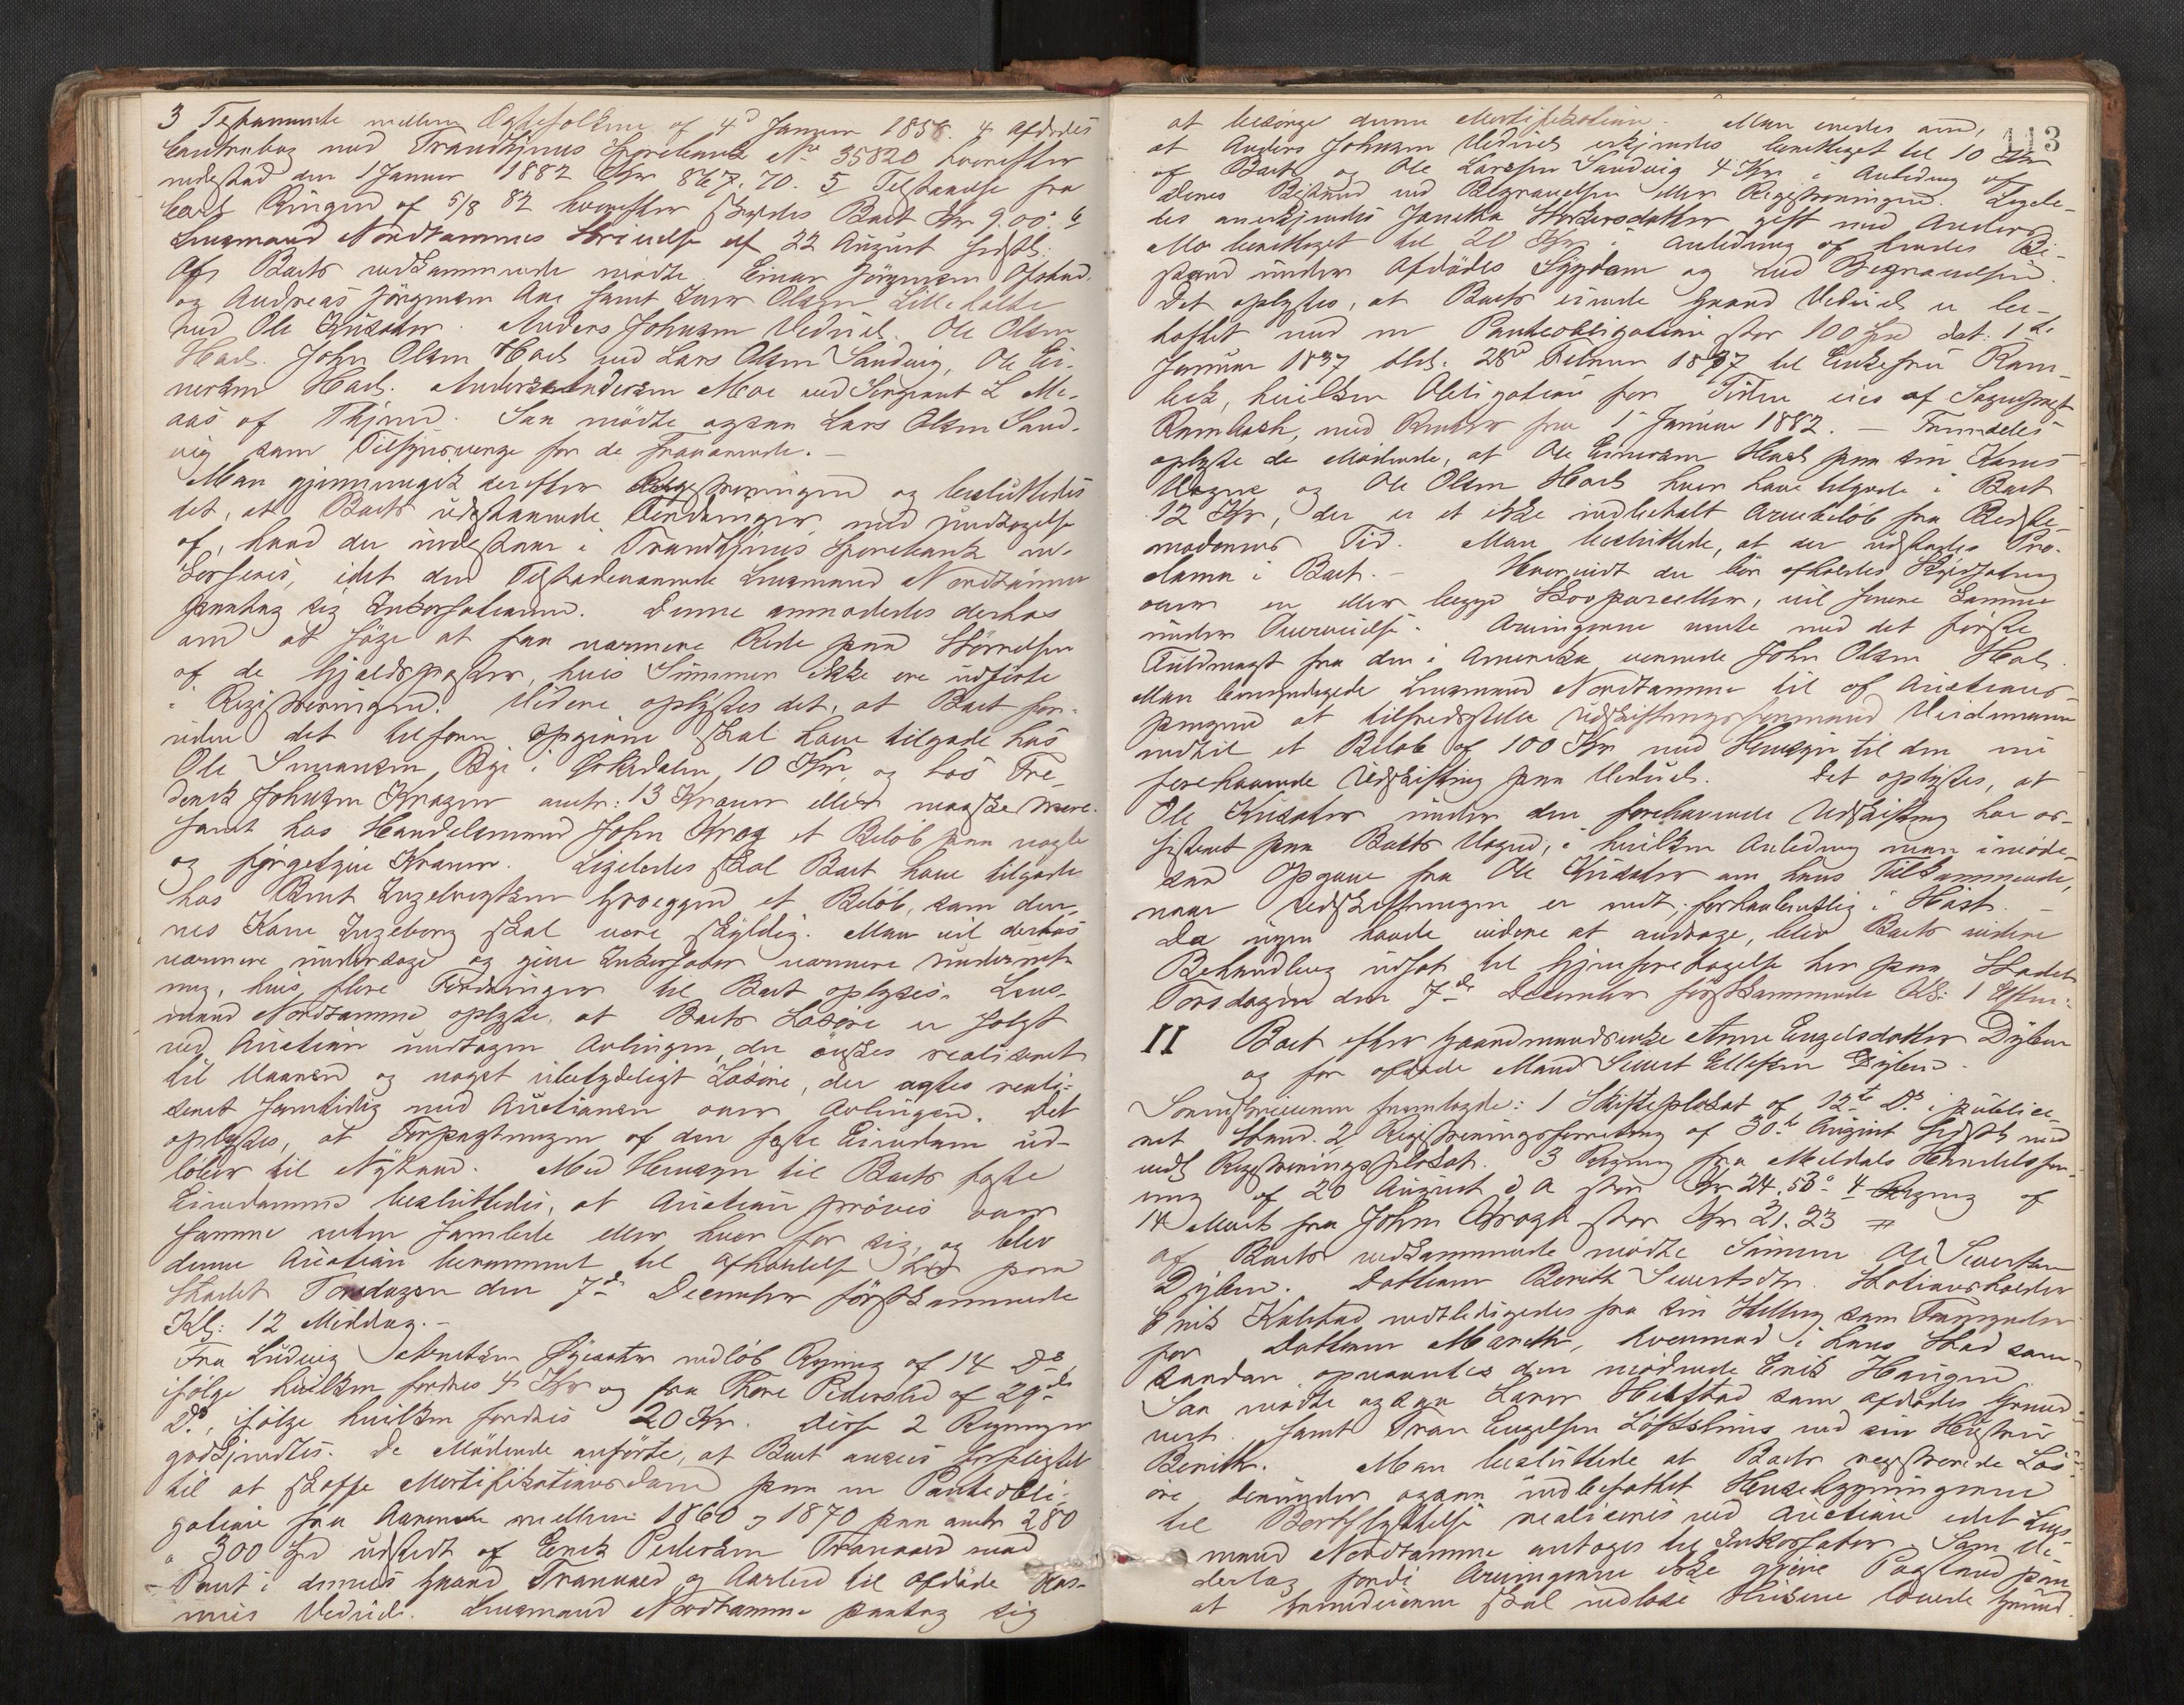 3 Testamente mellem Ægtefolkene af 4d Januar 1858. 4 Afdødes
Contrabog med Trondhjems Sparebank No 35820 hvorefter
indestod den 1 Januar 1882 Kr 867.70. 5 Tilstaaelse fra
Carl Ringen af 5/8 82 hvorefter skyldes Boet Kr 9.00. 6
Lensmand Nordtømmes Skrivelse af 22 August sidstl.
Af Boets vedkommende mødte Einar Jörgensen Opstad
og Andreas Jörgensen Aae samt Olsen Lilleholte
ved Ole Krisæter. Anders Johnsen Vedul, Ole Olsen
Hoel. John Olsen Hoel ved Lars Olsen Sandvig, Ole Ei-
nersen Hoel. Anders Andersen Moe ved Sergeant L Me-
aas af Thjem. Saa mødte ogsaa Lars Olsen Sand-
vig som Tilsynsværge for de Fraværende. –
Man gjennemgik derefter Registreringen og besluttedes
det, at Boets udestaaende Fordringer med Undtagelse
af, hvad der indestaar i Trondhjems Sparebank in-
kasseres, idet den Tilstedeværende Lensmand Nordtømme
paatog sig Inkassationen. Denne anmodedes derhos
om at søge at faa nærmere Rede paa Størrelsen
af de Gjeldsposter, hvis Summer ikke ere udførte
i Registreringen. Videre oplystes det, at Boet for-
uden det tilforn opgivne skal have tilgode hos
Ole Simensen Bye i Orkedalen 10 Kr og hos Fre-
derik Johnsen Kragen omtr: 13 Kroner eller maaske mere.
samt hos Handelsmand John Krog et Beløb paa nogle
og fyrgetyve Kroner. Ligeledes skal Boet have tilgode
hos Bernt Ingebrigtsen Groeggen et Beløb, som den-
nes Kone Ingeborg skal være skyldig. Man vil derhos
nærmere undersøge og give Inkassator nærmere Underret-
ning, hvis flere Fordringer til Boet oplyses. Lens-
mand Nordtømme oplyste, at Boets Løsøre er solgt
ved Auction undtagen Avlingen, der ønskes realiseret
til Vaaren og noget ubetydeligt Løsøre, der agtes reali-
seret samtidig med Auctionen over Avlingen. Det
oplystes, at Forpagtningen af den faste Eiendom ud-
løber til Nytaar. Med Hensyn til Boets faste
Eiendomme besluttedes, at Auction prøves over
samme enten samlede eller hver for sig, og blev
denne Auction berammet til Afholdelse her paa
Stedet Torsdagen den 7de December førstkommende
Kl: 12 Middag. –
Fra Ludvig indløb Regning af 14 Ds
ifølge hvilken fordres 4 Kr og fra Thore Pederslid af 29de
Ds, ifølge hvilken fordres 20 Kr. Disse 2 Regninger
godkjendtes. De Mødende anførte, at Boet ansees forpligtet
til at skaffe Mortifikationsdom paa en Panteobli-
gation fra Aarene mellem 1860 og 1870 paa omtr 280
a 300 Spd udstedt af Erik Pedersen Tranaaed mod
Pant i dennes Gaard Tranaaed og Aarlid til afdøde Ras-
mus Vedul. Lensmand Nordtømme paatog sig
113
at besørge denne Mortifikation. Man enedes om,
at Anders Johnsen Vedul erkjendes berettiget til 10 Kr
af Boet og Ole Larssen Sandvig 4 Kr i Anledning af
deres Bistand ved Begravelsen eller Registreringen. Ligele-
des anerkjendes Jonetta gift med Anders
Moe berettiget til 20 Kr i Anledning af hendes Bi-
stand under Afdødes Sygdom og ved Begravelsen.
Det oplystes, at Boets eiende Gaard Vedul er be-
heftet med en Panteobligation stor 100 Spd dat. 1de
Januar 1837 thl. 28d Februar 1837 til Enkefru Ram-
bech, hvilken Obligation for Tiden eies af Sogneprest
Rambech, med Renter fra 1 Januar 1882. – Fremdeles
oplyste de Mødende, at Ole Einersen Hoel paa sin Kones
Vegne og Ole Olsen Hoel hver have tilgode i Boet
12 Kr, der er et ikke indbetalt Arvebeløb fra Bedste-
moderens Tid. Man besluttede, at der udstædes Pro-
clama i Boet. – Hvorvidt der bør afholdes Skjødsætning
over en eller begge Skovparceller, vil senere komme
under Overveielse. Arvingerne vente med det første
Fuldmagt fra den i Amerika værende John Olsen Hoel.
Man bemyndigede Lensmand Nordtømme til af Auctions-
pengene at tilfredsstille Udskiftningsformand Weidemann
indtil et Beløb af 100 Kr med Hensyn til den nu
forehavende Udskiftning paa Vedul. Det oplystes, at
Ole Krisæter under den forehavende Udskiftning har as-
sisteret paa Boets Vegne, i hvilken Anledning man imøde-
saa Opgave fra Ole Krisæter om hans Tilkommende,
naar Udskiftningen er endt, forhaabentlig i Høst. –
Da ingen havde videre at andrage, blev Boets videre
Behandling udsat til Gjenforetagelse her paa Stedet
Torsdagen den 7de December førstkommende Kl: 1 Efterm:
II Boet efter Gaardmandsenke Anne Engelsdatter Dyben
og før afdøde Mand Sivert Ellefsen Dyben.
Sorenskriveren fremlagde: 1 Skifteplakat af 12te Ds i publice-
ret Stand. 2 Registreringsforretning af 30te August sidstl med
vedh. Registreringsplakat. 3 Regning fra Meldals Handelsfor-
ning af 20 August d. A. stor Kr 24.58. 4 Regning af
14 Marts fra John Krogh stor Kr 21.23
Af Boets vedkommende mødte Sønnen Ole Sivertsen
Dyben. Datteren Berith Sivertsdtr. Stationsholder
Erik Kalstad vedtledigedes fra sin Stilling som Formynder
for Datteren Marethe, hvormod i hans Sted som
saadan opnævntes den mødende Erik Haugen.
Saa mødte ogsaa Helstad som afdødes Grund
vert. samt Engelsen Løftshus med sin Hustru
Berith. Man besluttede at Boets registrerede Løs-
øre, derunder ogsaa indbefattet Husebygningerne
til Bortflyttelse realiseres ved Auction idet Lens-
mand Nordtømme antages til Inkassator. Som Vi-
derlag fordi Arvingerne ikke gjøre Paastand paa
at Grundeieren skal indløse Husene lovede Grund